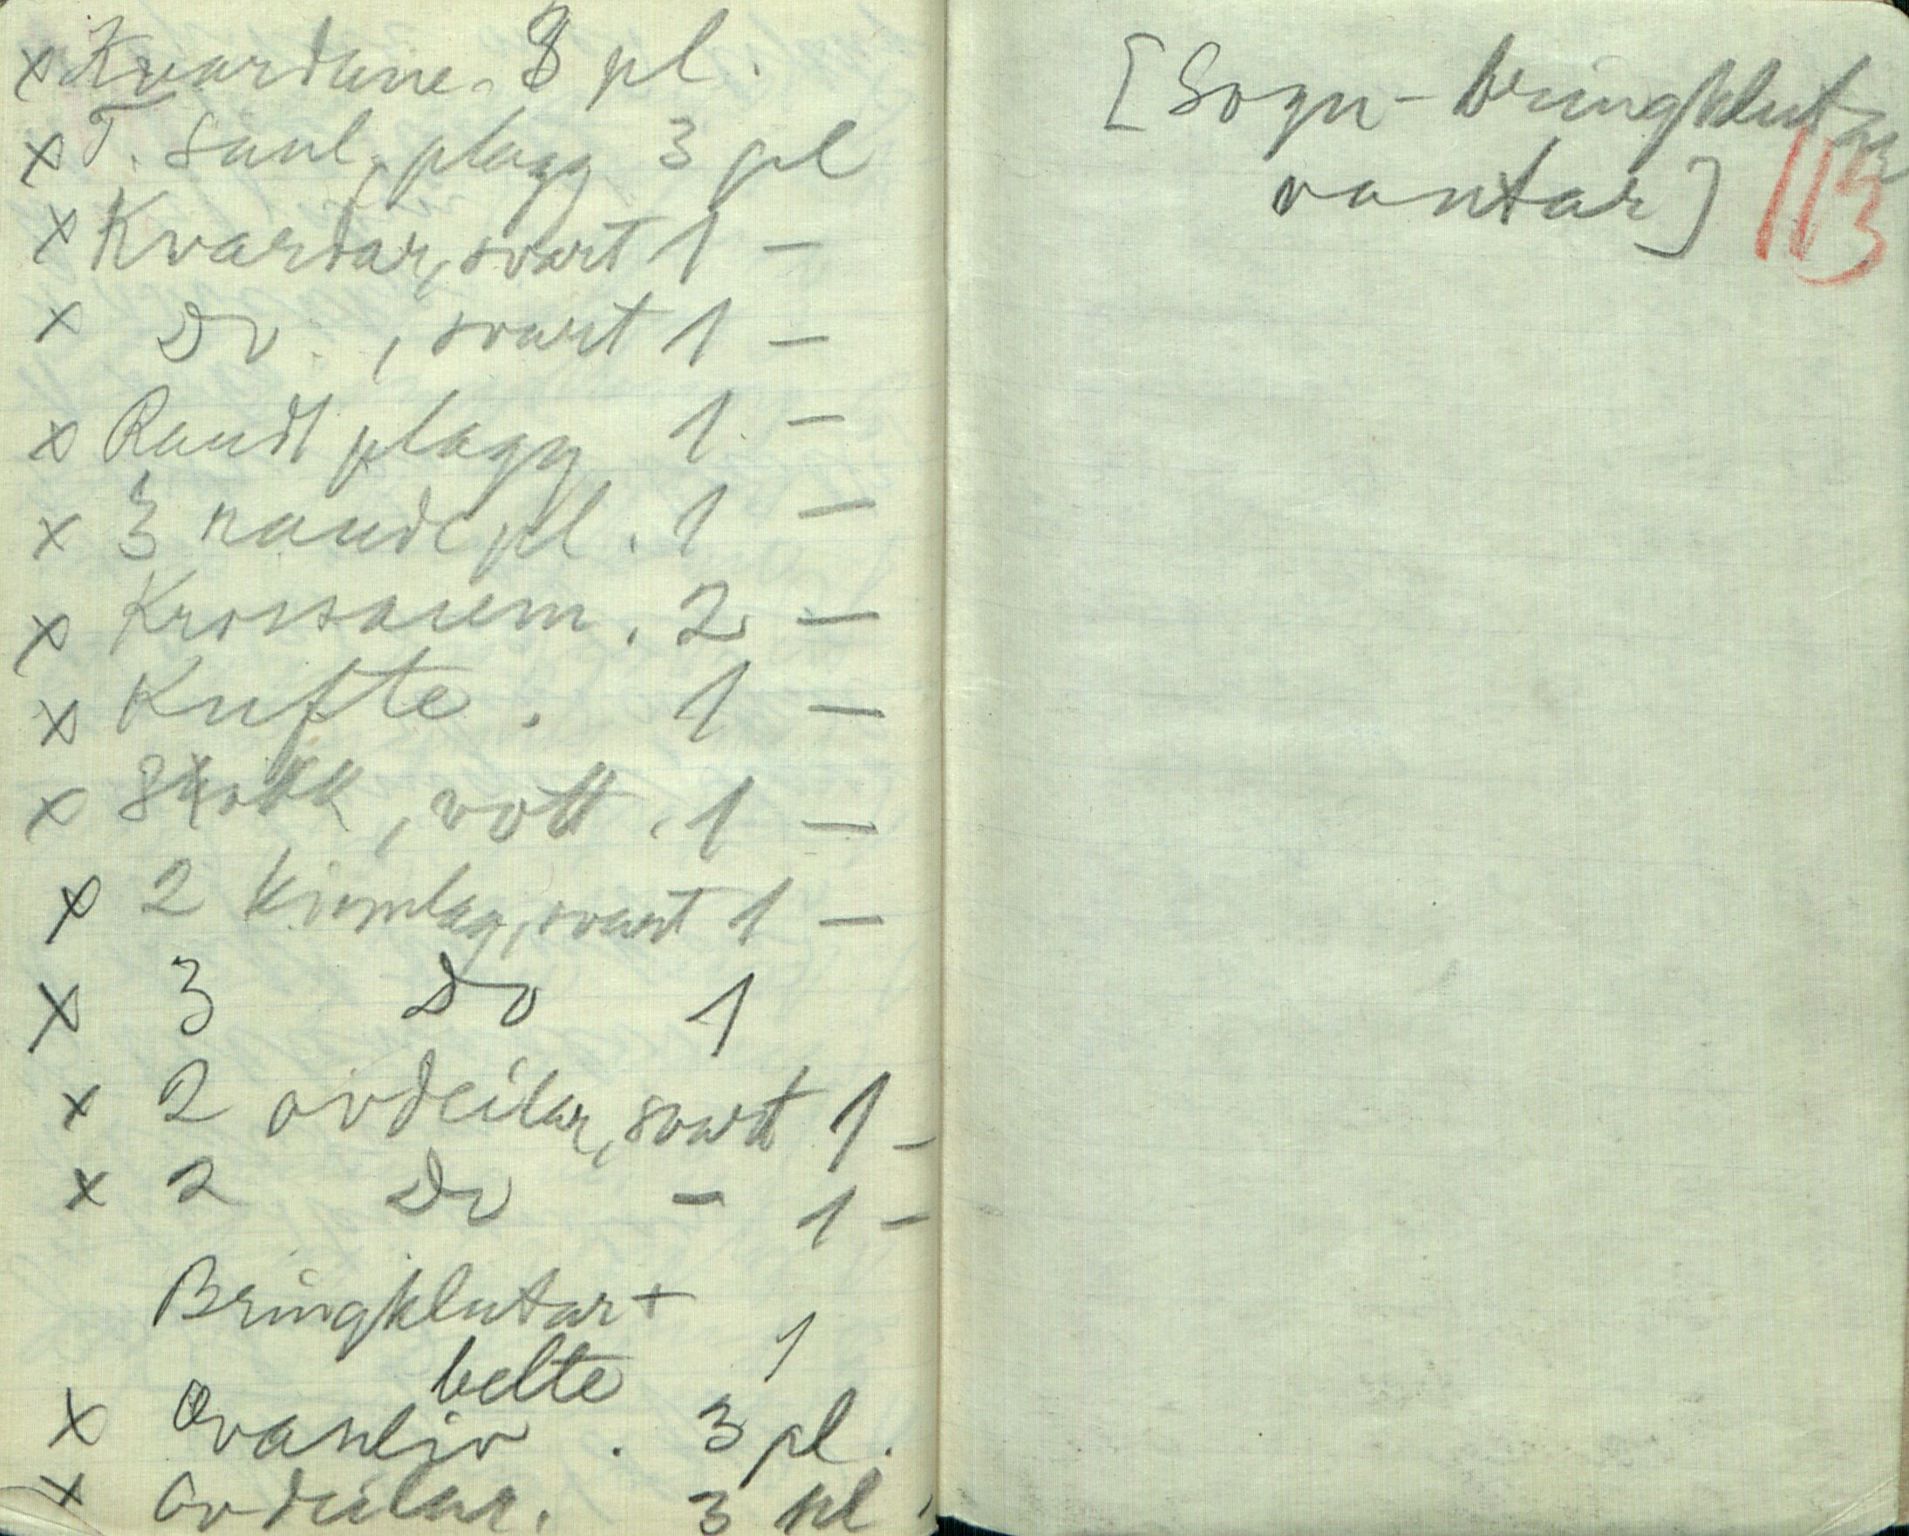 x Kvardune. 8 pl.
x T. Saul. plagg 3 pl
x Kvardar, svart 1 –
x Do. , svart 1 –
x Raudt plagg 1 –
x 3 raude pl. 1 –
x Krossaum. 2 –
x Kufte. 1 –
x Skokk, vott. 1 –
x 2 kinnlag, svart 1 –
x 3 Do 1
x 2 ovdeilar, svart 1 –
x 2 Do – 1 –
Bringklutar +
belte 1
x Ovanliv. 3 pl.
x Ovdeilar. 3 pl
[Sogn - bringklutar
vantar] 113